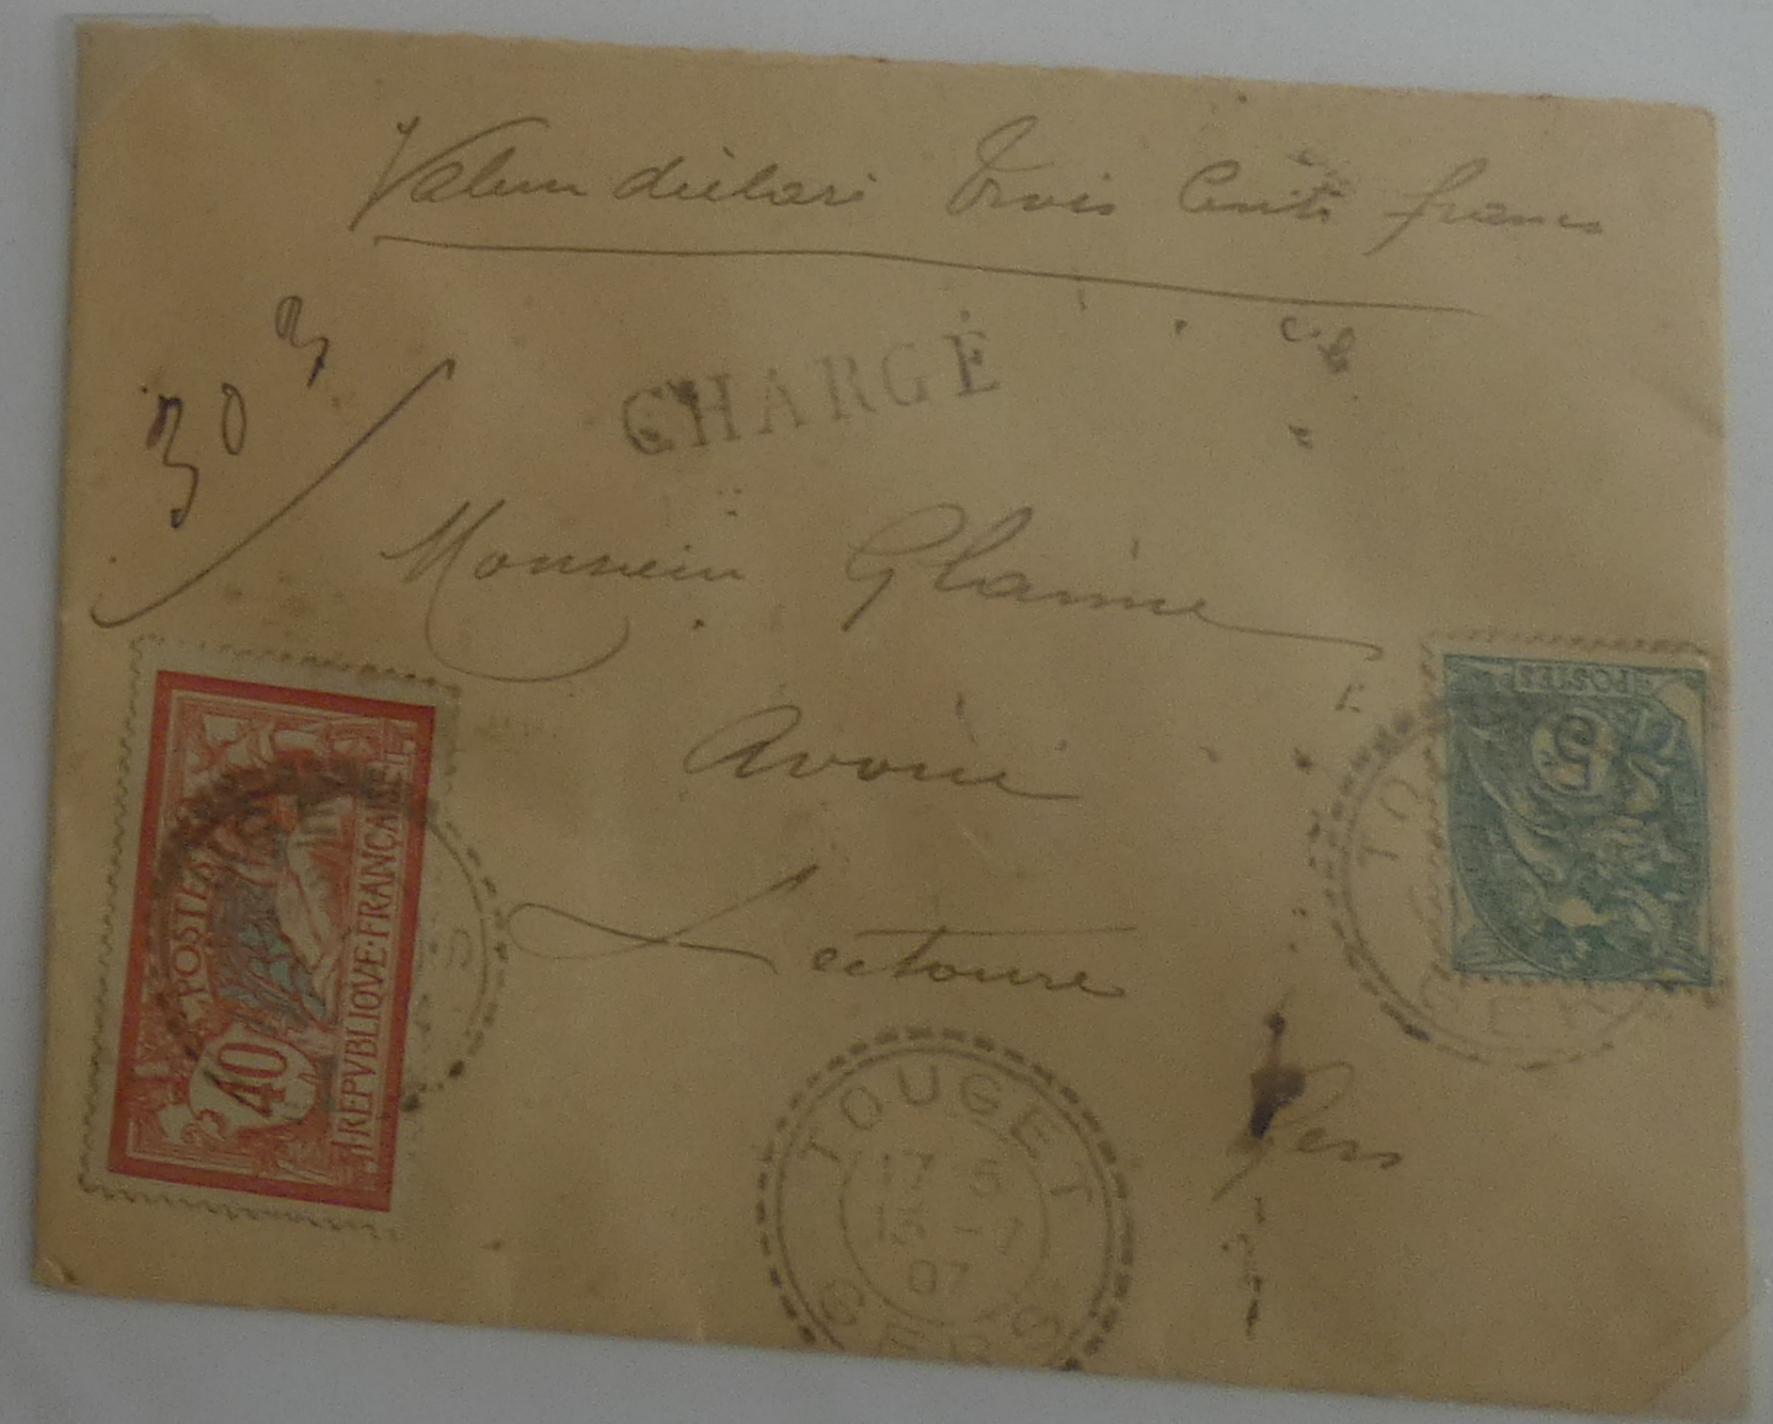 Valeur déclaré Trois Cents francs
CHARGÉ
30
Monsieur Glaine
Avoué
Lectoure
Gers
POSTES
40
REPVBLIQVE·FRANÇAISE
POSTES
5
TO
GER
TOUGET
17 5
15 -7
07
GERS